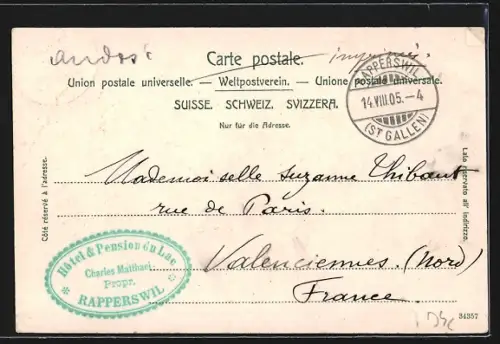 Carte postale.
imprimé.
Union postale universelle. — Weltpostverein. — Unione postale universale.
SUISSE. SCHWEIZ. SVIZZERA.
Nur für die Adresse.
RAPPERSWIL
14.VIII.05.–4
(ST GALLEN)
Côté réservé à l'adresse.
Lato riservato all' indirizzo.
Mademoiselle Suzanne Thibaut
rue de Paris.
Valenciennes. (Nord)
France.
Hôtel & Pension du Lac
Charles Matthaei
Propr.
RAPPERSWIL
34257